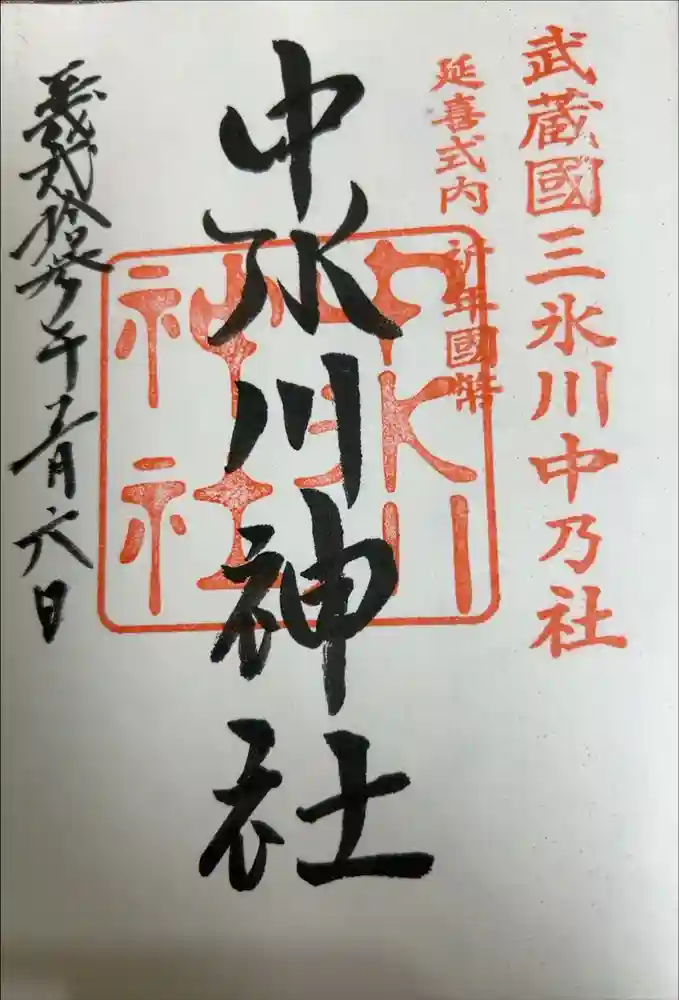 武蔵國三氷川中乃社
延喜式内 祈年國幣
中氷川神社
中氷川
神社
平成弐拾参年五月六日